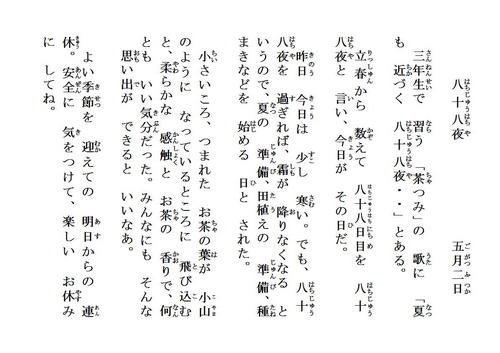 八十八夜　　五月二日
三年生で　習う「茶つみ」の　歌に　「夏
も　近づく　八十八夜・・」とある。
立春から　数えて　八十八日目を　八十
八夜と　言い、今日が　その日だ。
昨日　今日は　少し　寒い。でも、八十
八夜を　過ぎれば、霜が　降りなくなる　と
いうので、夏の　準備、田植えの　準備、種
まきなどを　始める　日と　された。
小さいころ、つまれた　お茶の葉が　小山
のように　なっているところに　飛び込む
と、柔らかな　感触と　お茶の　香りで、何
とも　いい気分だった。みんなにも　そんな
思い出が　できると　いいなあ。
よい季節を　迎えての　明日からの　連
休。安全に　気をつけて、楽しい　お休み
に　してね。